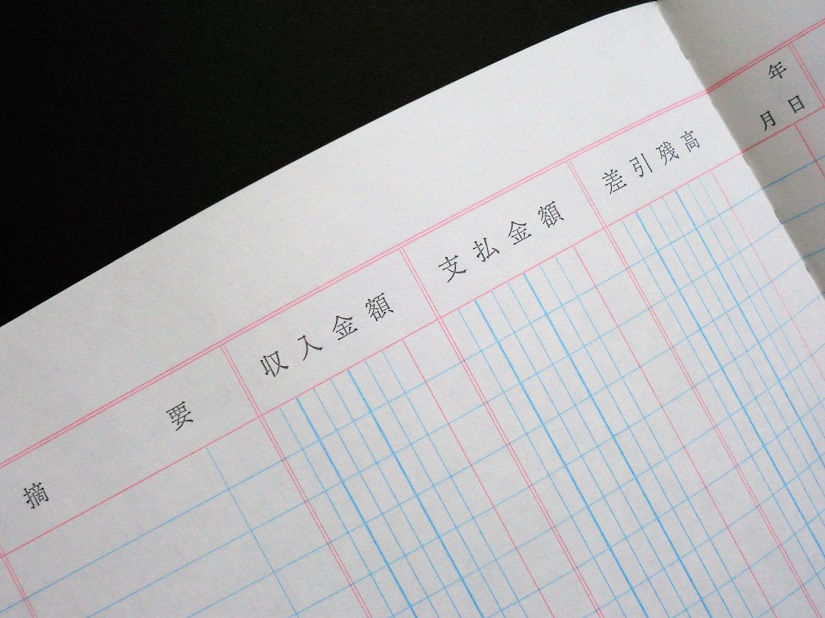 摘要
収入金額
支払金額
差引残高
年
月日